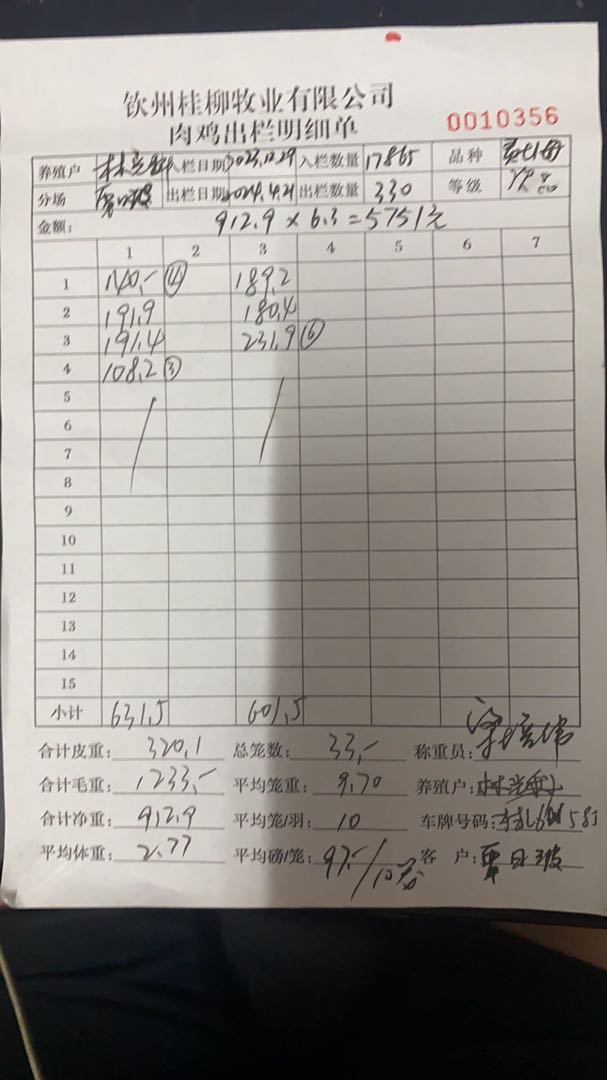 钦州桂柳牧业有限公司
肉鸡出栏明细单
0010356
养殖户 入栏日期 2023.12.29 入栏数量 17865 品种
分场 出栏日期 2024.4.21 出栏数量 330 等级 次品
金额: 912.9 × 6.3 = 5751元
1 2 3 4 5 6 7
1 140,- ④ 189.2
2 191.9 180.4
3 191.4 231.9 ⑥
4 108.2 ③
5
6
7
8
9
10
11
12
13
14
15
小计 631.5 601.5
合计皮重: 320.1 总笼数: 33,- 称重员:
合计毛重: 1233,- 平均笼重: 9.70 养殖户:
合计净重: 912.9 平均笼/羽: 10 车牌号码:
平均体重: 2.77 平均磅/笼: 97,-/10 客 户: